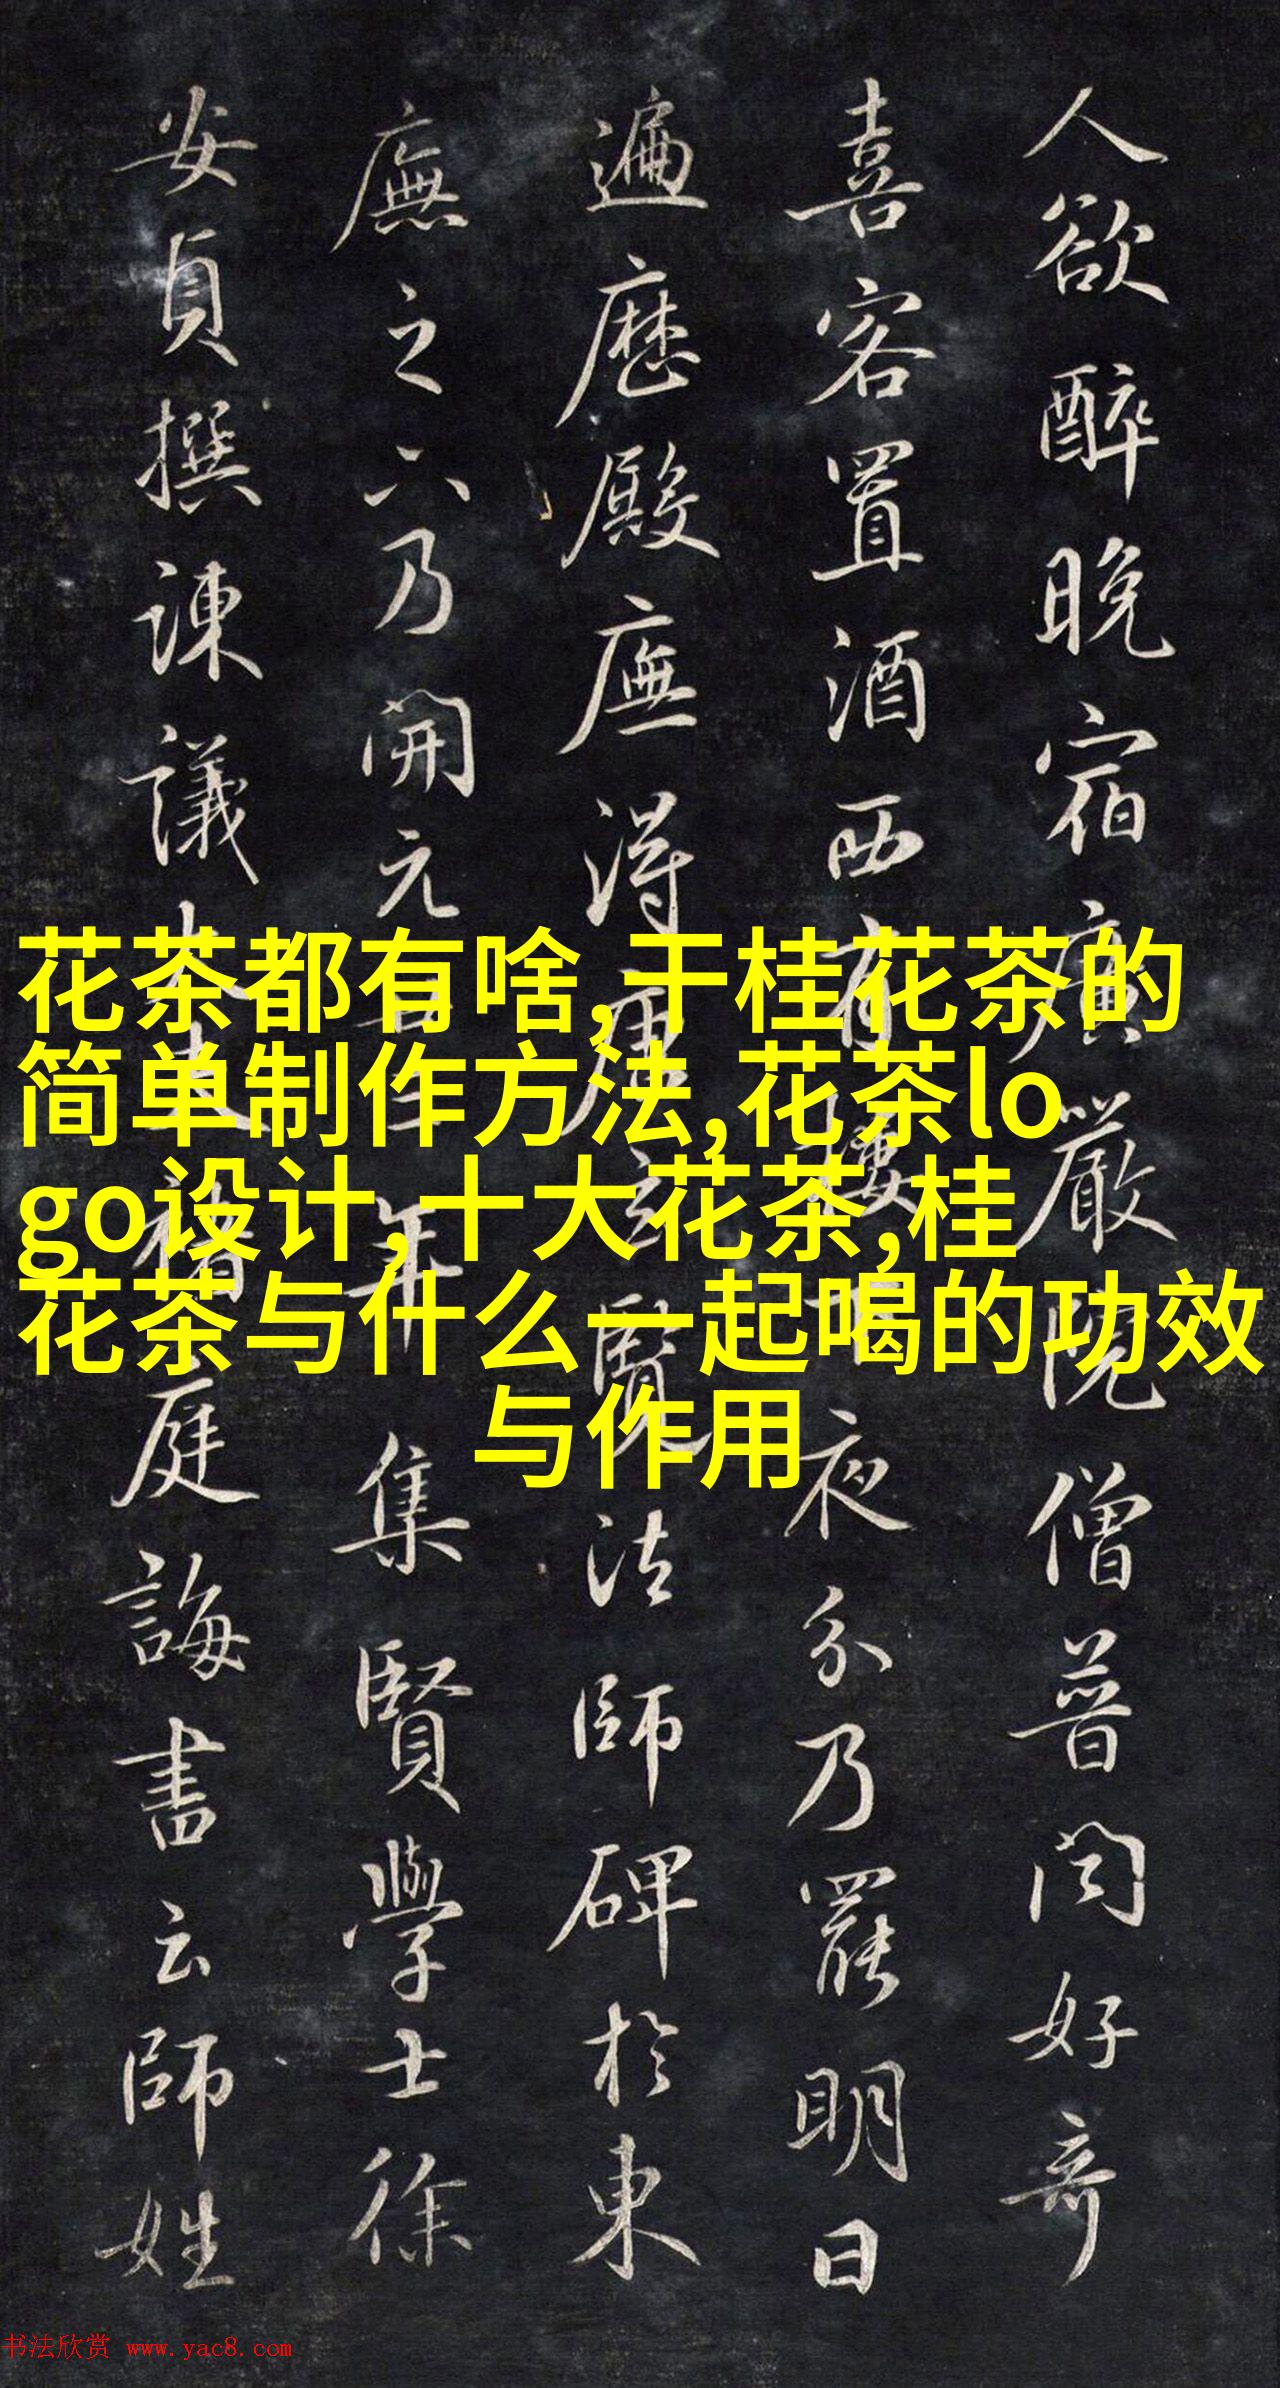 人欲醉晚宿廣嚴院僧普闻好奇
喜客置酒西有樓夜分乃罷明日
遍歷殿廡得唐玄覽法師碑於東
廡之下乃開元年集賢學士徐
安貞撰諫議大夫褚庭誨書云師姓
花茶都有啥,干桂花茶的
简单制作方法,花茶lo
go设计,十大花茶,桂
花茶与什么一起喝的功效
与作用
书法欣赏 www.yac8.com